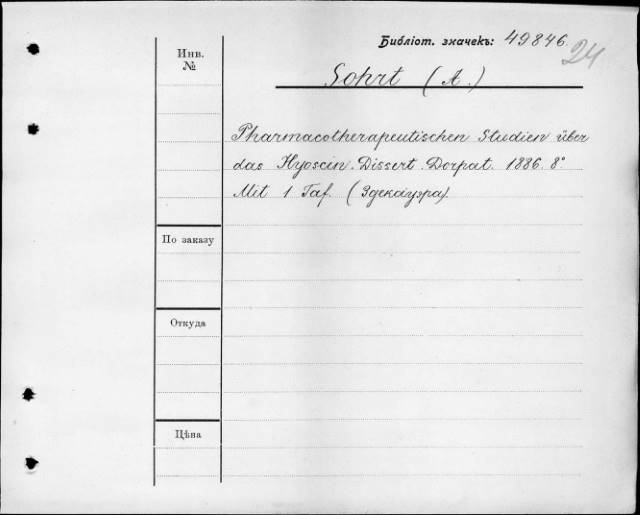 Библіот. значекъ: 49846.
24
Инв.
№
Sohrt (A.)
Pharmacotherapeutischen Studien über
das Hyoscin. Dissert. Dorpat. 1886. 8°.
Mit 1 Taf. (Эдекауэра).
По заказу
Откуда
Цѣна